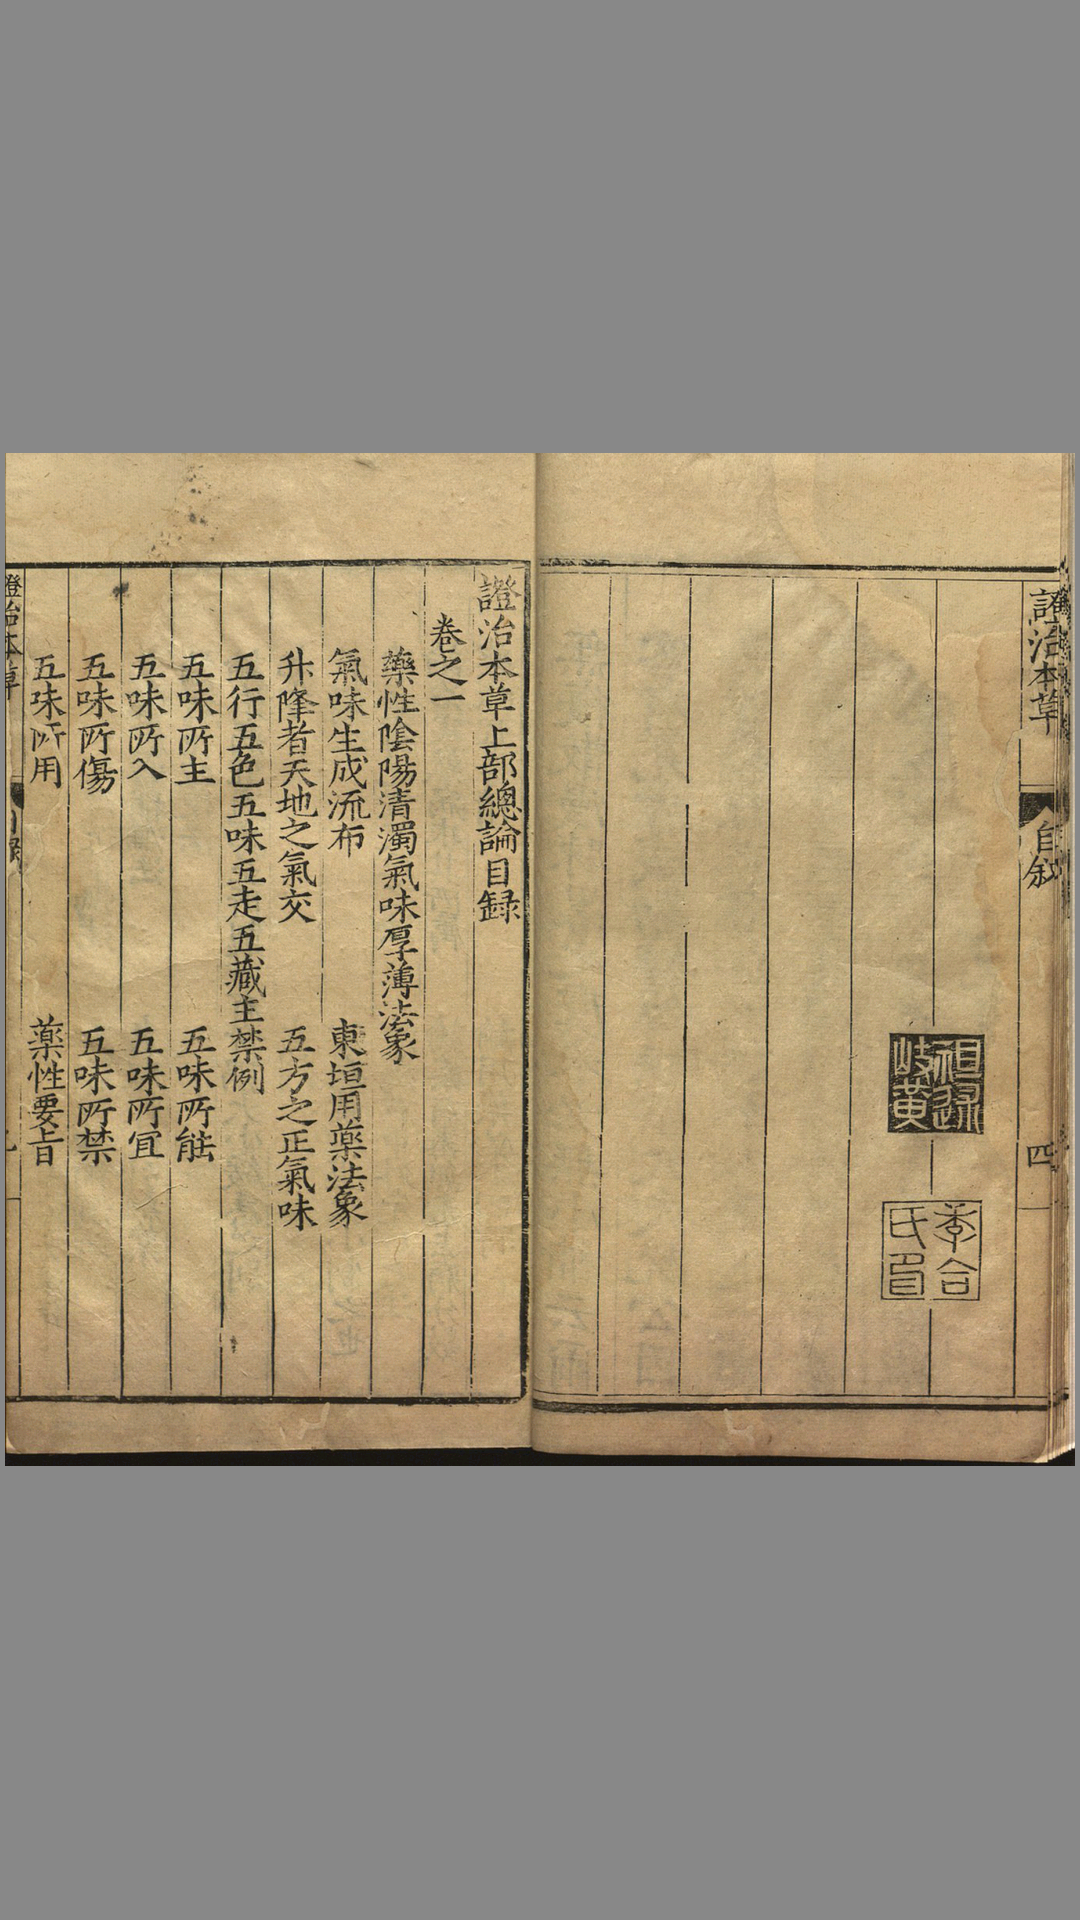 證治本草
自敘
四
證治本草上部總論目録
卷之一
藥性陰陽清濁氣味厚薄法象
氣味生成流布 東垣用藥法象
升降者天地之氣交 五方之正氣味
五行五色五味五走五藏主禁例
五味所主 五味所能
五味所入 五味所宜
五味所傷 五味所禁
五味所用 藥性要旨
證治本草